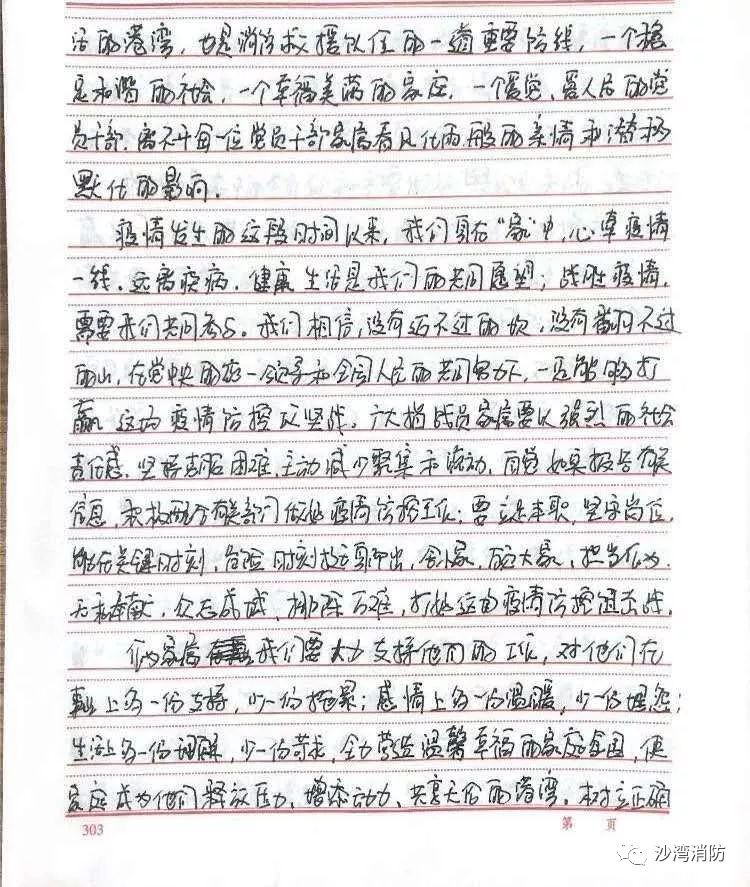 活的港湾，也是消防救援队伍的一道重要防线，一个稳
定和谐的社会，一个幸福美满的家庭，一个爱党、爱人民的党
员干部，离不开每一位党员干部家属春风化雨般的亲情和潜移
默化的影响。
疫情发生的这段时间以来，我们身在“家”中，心牵疫情
一线，远离疾病，健康生活是我们的共同愿望；战胜疫情，
需要我们共同参与。我们相信，没有迈不过的坎，没有翻不过
的山，在党中央的统一领导和全国人民的共同努力下，一定能够打
赢这场疫情防控攻坚战。广大指战员家属要以强烈的社会
责任感，坚持克服困难，主动减少聚集和流动，自觉如实报告有关
信息，积极配合有关部门做好疫情防控工作；要立足本职，坚守岗位，
能在关键时刻，危险时刻挺身而出，舍小家，顾大家，担当作为，
无私奉献，众志成城，排除万难，打好这场疫情防控阻击战。
作为家属我们要大力支持他们的工作，对他们在
事业上多一份支持，少一份抱怨；感情上多一份温暖，少一份埋怨；
生活上多一份理解，少一份苛求，全力营造温馨幸福的家庭氛围，使
家庭成为他们释放压力、增添动力、共享天伦的港湾。树立正确
303
第 页
沙湾消防